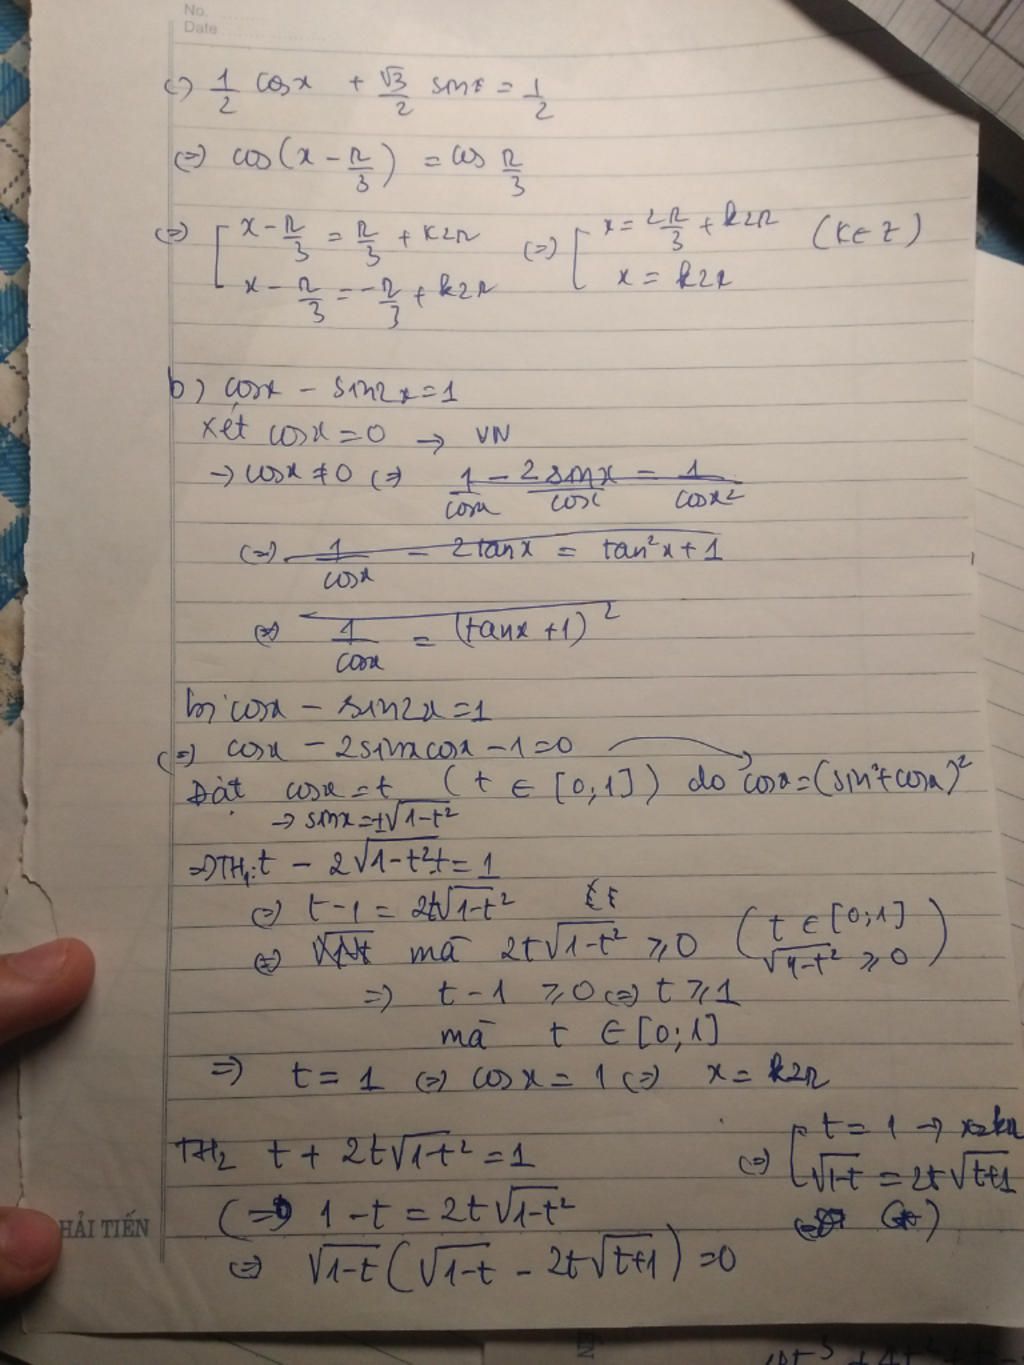 No.
Date
(=) 1/2 cosx + √3/2 sinx = 1/2
(=) cos(x - π/3) = cos π/3
(=) [ x - π/3 = π/3 + k2π (=) [ x = 2π/3 + k2π (k ∈ Z)
x - π/3 = -π/3 + k2π x = k2π
b) cosx - sin2x = 1
Xét cosx = 0 → VN
→ cosx ≠ 0 (=) 1/cosx - 2sinx/cosx = 1/cosx²
(=) 1/cosx - 2tanx = tan²x + 1
(=) 1/cosx = (tanx + 1)²
b) cosx - sin2x = 1
(=) cosx - 2sinxcosx - 1 = 0
Đặt cosx = t (t ∈ [0;1]) do cosx = (sin + cosx)²
→ sinx = ±√1-t²
=) TH1: t - 2√1-t² t = 1
(=) t - 1 = 2t√1-t²
(=) mà 2t√1-t² ≥ 0 (t ∈ [0;1]
√1-t² ≥ 0)
=) t - 1 ≥ 0 (=) t ≥ 1
mà t ∈ [0;1]
=) t = 1 (=) cosx = 1 (=) x = k2π
TH2 t + 2t√1-t² = 1
(=) 1 - t = 2t√1-t²
(=) √1-t (√1-t - 2t√t+1) = 0
(=) [ t = 1 → x = k2π
√1-t = 2t√t+1
(*)
HẢI TIẾN